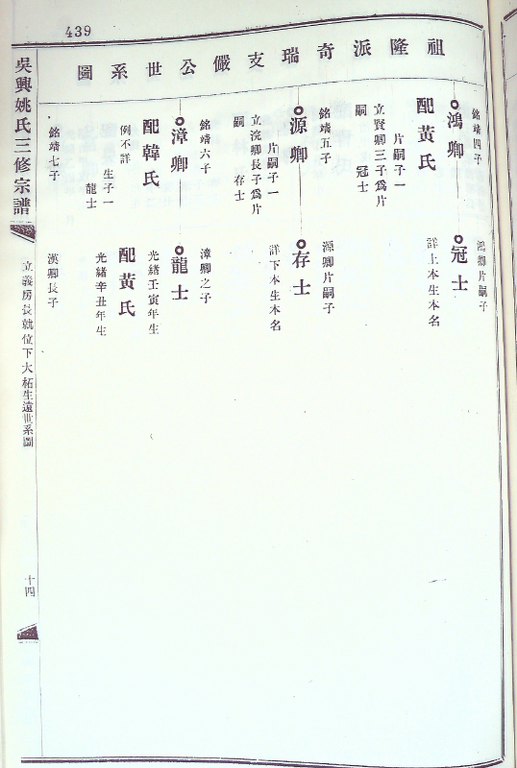 439
祖隆派奇瑞支儼公世系圖
銘靖四子
鴻卿
配黃氏
片嗣子一
立賢卿三子爲片
嗣 冠士
銘靖五子
源卿
片嗣子一
立浣卿長子爲片
嗣 存士
銘靖六子
漳卿
配韓氏
生子一
例不詳 龍士
銘靖七子
鴻卿片嗣子
冠士
詳上本生本名
源卿片嗣子
存士
詳下本生本名
漳卿之子
龍士
光緒壬寅年生
配黃氏
光緒辛丑年生
漢卿長子
吳興姚氏三修宗譜
立義房長就位下大柘生遠世系圖
十四